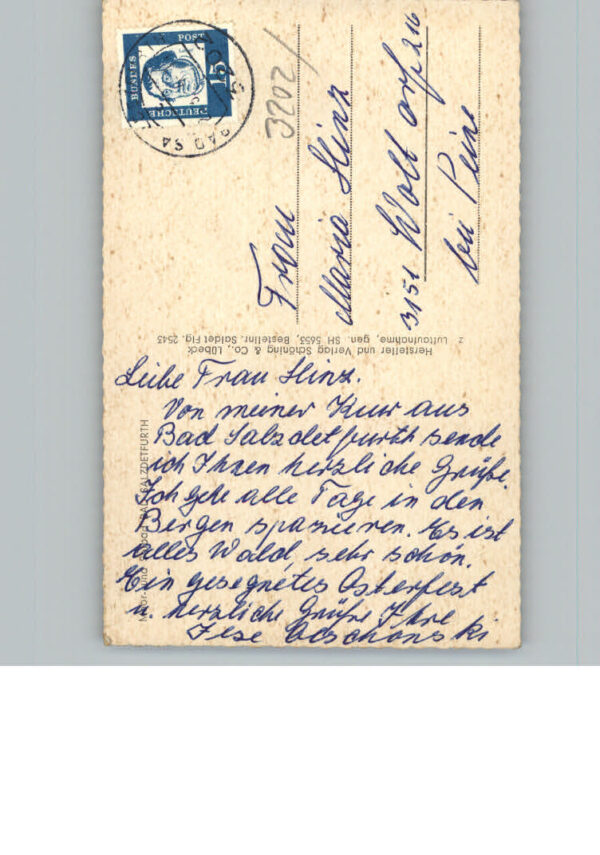 DEUTSCHE
BUNDES
POST
15
BAD SA
3202/
Frau
Maria Hinz
3151 Woltorf 216
bei Peine
Hersteller und Verlag Schöning & Co., Lübeck
z Luftaufnahme, gen. SH 5653, Bestellnr. Saldet Flg. 2543
BAD SALZDETFURTH
Liebe Frau Hinz.
Von meiner Kur aus
Bad Salzdetfurth sende
ich Ihnen herzliche Grüße.
Ich gehe alle Tage in den
Bergen spazieren. Es ist
alles Wald, sehr schön.
Ein gesegnetes Osterfest
u. herzliche Grüße Ihre